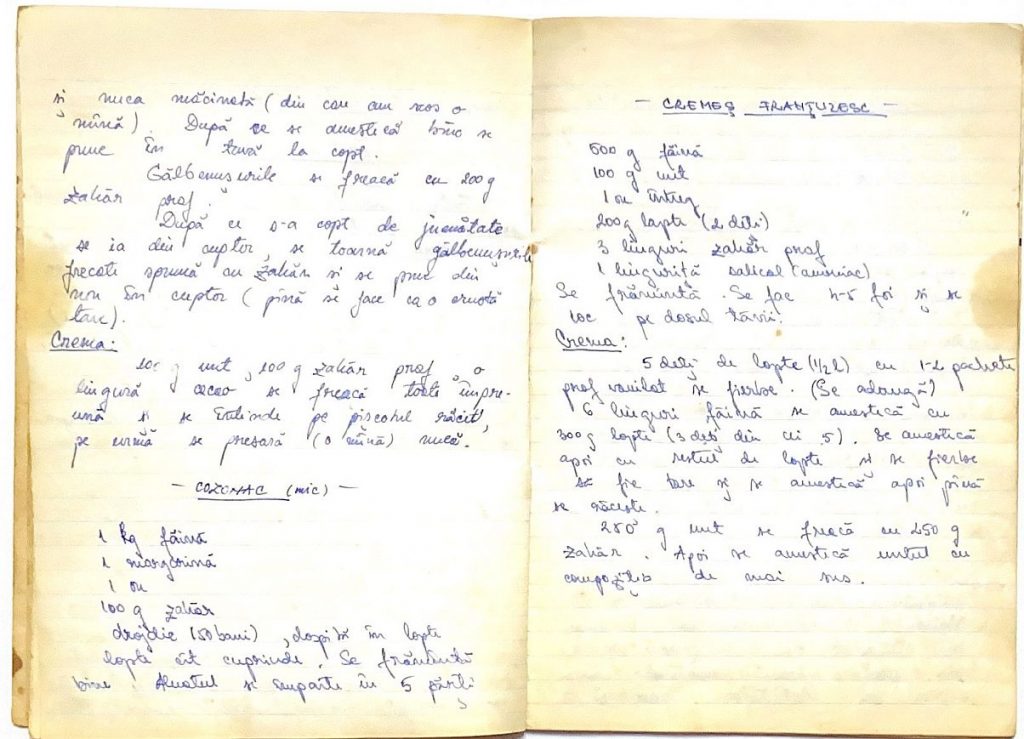 și nuca măcinată (din care am scos o
mînă). După ce se amestecă bine se
pune în tavă la copt.
Gălbenușurile se freacă cu 200 g
zahăr praf.
După ce s-a copt de jumătate
se ia din cuptor, se toarnă gălbenușurile
frecate spumă cu zahăr și se pune din
nou în cuptor (pînă se face ca o crustă
tare).
Crema:
100 g unt, 100 g zahăr praf, o
lingură cacao se freacă toate împre-
ună și se întinde pe pișcotul răcit,
pe urmă se presară (o mînă) nucă.
- COZONAC (mic) -
1 kg făină
1 margarină
1 ou
100 g zahăr
drojdie (50 bani), dospită în lapte
lapte cît cuprinde. Se frămîntă
bine. Aluatul se împarte în 5 părți
- CREMEȘ FRANȚUZESC -
500 g făină
100 g unt
1 ou întreg
200 g lapte (2 deți)
3 linguri zahăr praf
1 linguriță salicol (amoniac)
Se frămîntă. Se fac 4-5 foi și se
coc pe dosul tăvii.
Crema:
5 deți de lapte (1/2 l) cu 1-2 pachete
praf vanilat se fierbe. (Se adaugă)
6 linguri făină se amestică cu
300 g lapte (3 deți din cei 5). Se amestică
apoi cu restul de lapte și se fierbe
să fie tare și se amestică apoi pînă
se răcește.
250 g unt se freacă cu 250 g
zahăr. Apoi se amestică untul cu
compoziția de mai sus.